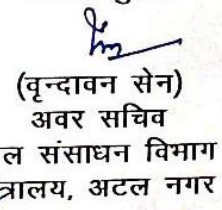 (वृन्दावन सेन)
अवर सचिव
ल संसाधन विभाग
त्रालय, अटल नगर